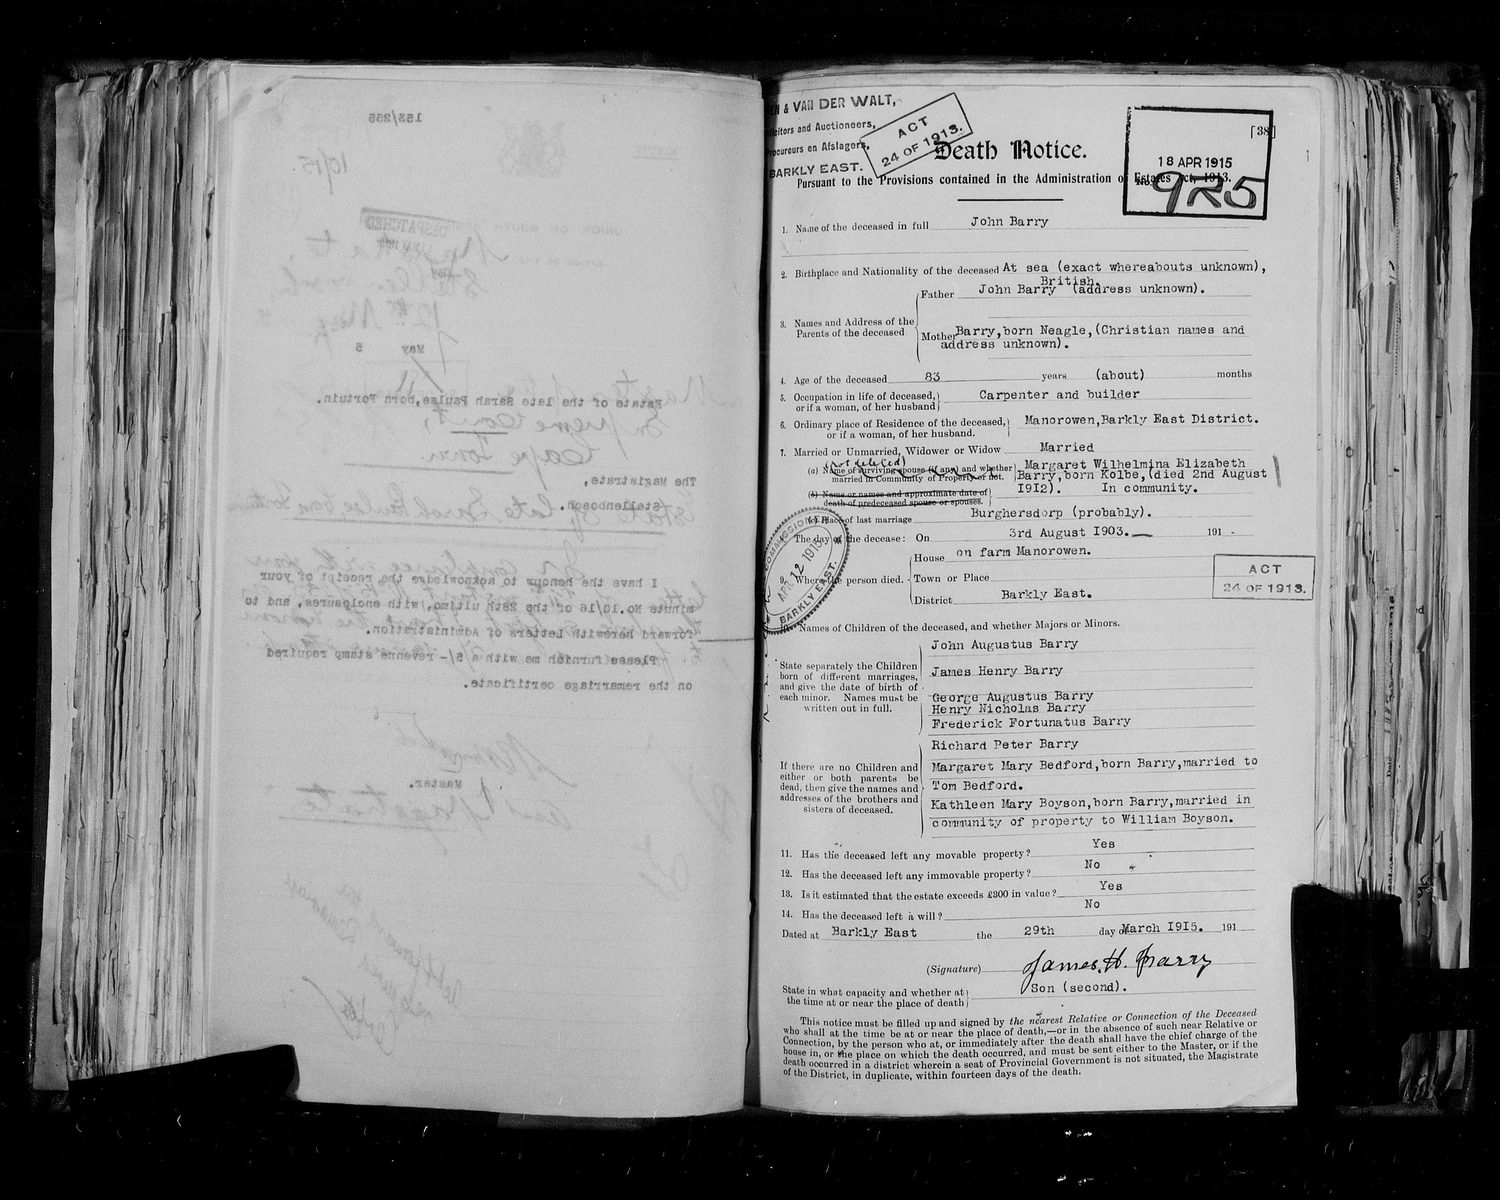 153/255
May 5
Estate of the late Sarah Paulse, born Fortuin.
The Magistrate,
Stellenbosch.
I have the honour to acknowledge the receipt of your
minute No.10/16 of the 28th ultimo, with enclosures, and to
forward herewith Letters of Administration.
Please furnish me with a 5/- revenue stamp required
on the remarriage certificate.
Master.
& VAN DER WALT,
and Auctioneers,
en Afslagers,
BARKLY EAST.
ACT
24 OF 1913.
[38]
Death Notice.
18 APR 1915
925
Pursuant to the Provisions contained in the Administration of Estates Act, 1913.
1. Name of the deceased in full John Barry
2. Birthplace and Nationality of the deceased At sea (exact whereabouts unknown),
British.
3. Names and Address of the Parents of the deceased
Father John Barry (address unknown).
Mother Barry,born Neagle,(Christian names and
address unknown).
4. Age of the deceased 83 years (about) months
5. Occupation in life of deceased, or if a woman, of her husband Carpenter and builder
6. Ordinary place of Residence of the deceased, or if a woman, of her husband. Manorowen,Barkly East District.
7. Married or Unmarried, Widower or Widow Married
(not deleted)
(a) Name of surviving spouse (if any) and whether married in Community of Property or not.
Margaret Wilhelmina Elizabeth
Barry,born Kolbe,(died 2nd August
1912). In community.
(b) Name or names and approximate date of death of predeceased spouse or spouses.
(c) Place of last marriage Burghersdorp (probably).
8. The day of the decease: On 3rd August 1903. 191
9. Where the person died.
House on farm Manorowen.
Town or Place
District Barkly East.
COMMISSIONER
APR 12 1915
BARKLY EAST.
ACT
24 OF 1913.
10. Names of Children of the deceased, and whether Majors or Minors.
State separately the Children
born of different marriages,
and give the date of birth of
each minor. Names must be
written out in full.
John Augustus Barry
James Henry Barry
George Augustus Barry
Henry Nicholas Barry
Frederick Fortunatus Barry
If there are no Children and
either or both parents be
dead, then give the names and
addresses of the brothers and
sisters of deceased.
Richard Peter Barry
Margaret Mary Bedford,born Barry,married to
Tom Bedford.
Kathleen Mary Boyson,born Barry,married in
community of property to William Boyson.
11. Has the deceased left any movable property? Yes
12. Has the deceased left any immovable property? No
13. Is it estimated that the estate exceeds £300 in value? Yes
14. Has the deceased left a will? No
Dated at Barkly East the 29th day of March 1915. 191
(Signature) James. H. Barry
State in what capacity and whether at the time at or near the place of death Son (second).
This notice must be filled up and signed by the nearest Relative or Connection of the Deceased
who shall at the time be at or near the place of death,—or in the absence of such near Relative or
Connection, by the person who at, or immediately after the death shall have the chief charge of the
house in, or the place on which the death occurred, and must be sent either to the Master, or if the
death occurred in a district wherein a seat of Provincial Government is not situated, the Magistrate
of the District, in duplicate, within fourteen days of the death.